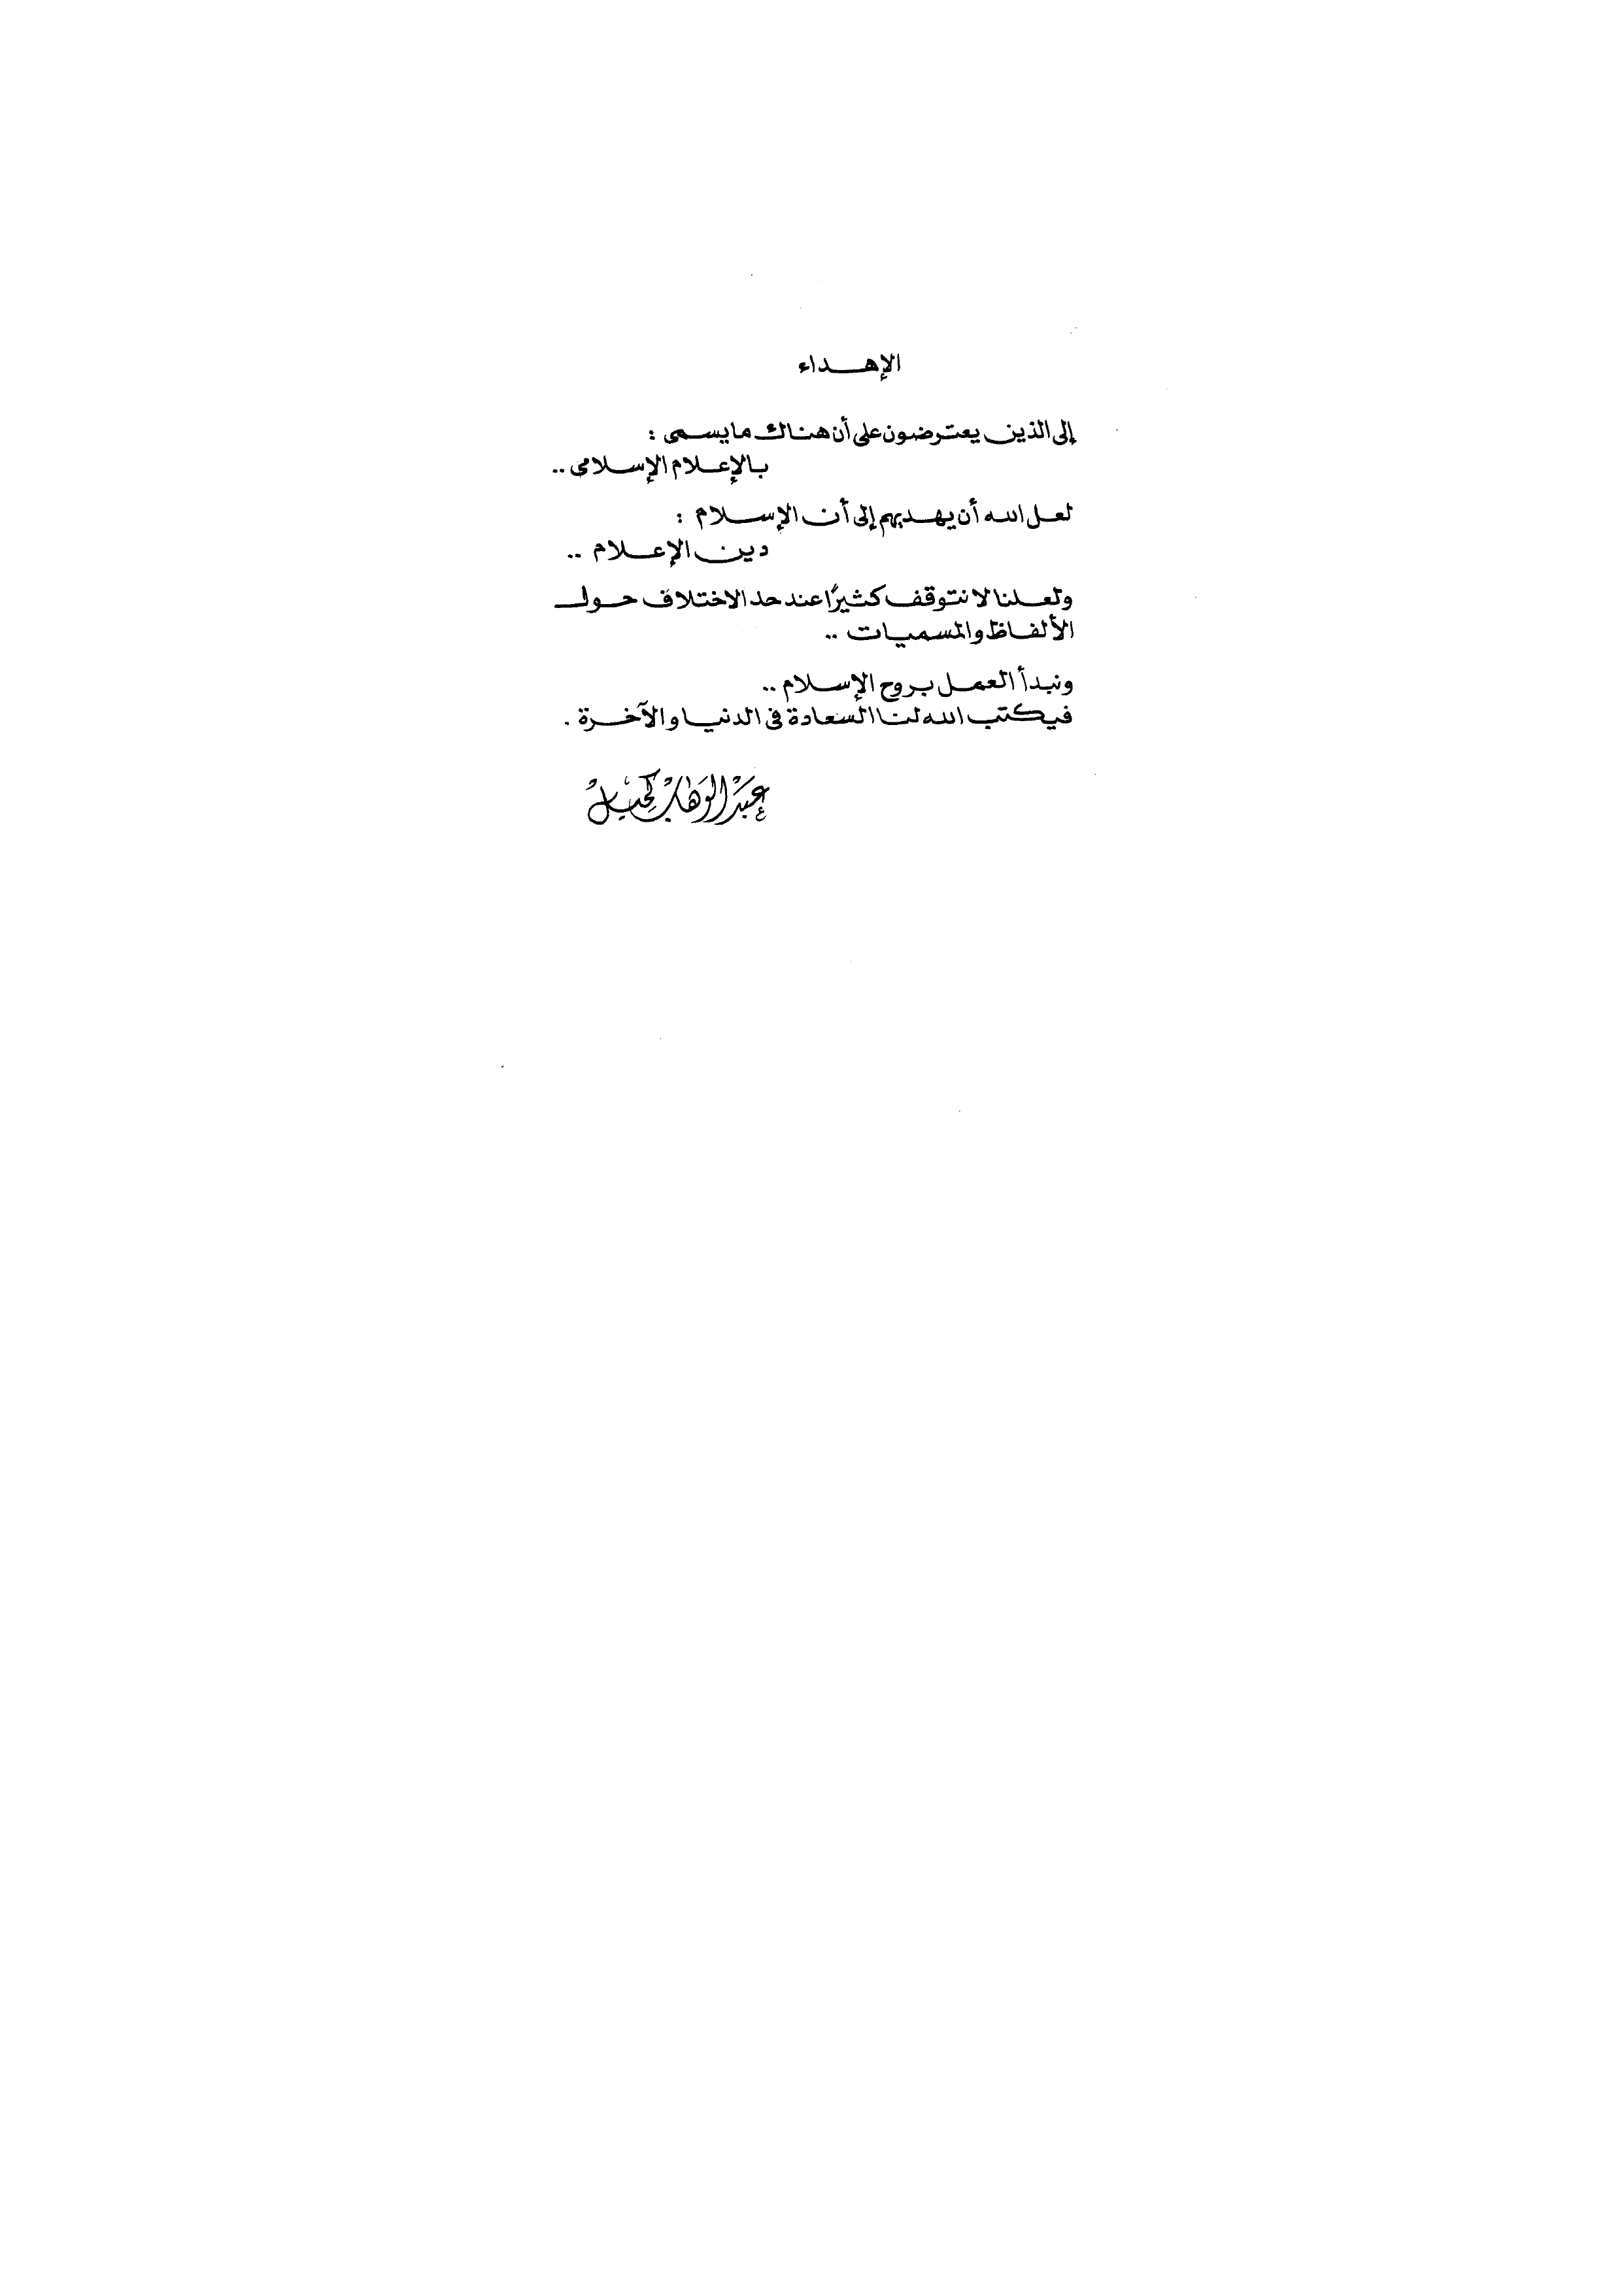 الإهداء
إلى الذين يعترضون على أن هناك ما يسمى :
بالإعلام الإسلامى ..
لعل الله أن يهديهم إلى أن الإسلام :
دين الإعلام ..
ولعلنا لا نتوقف كثيرًا عند حد الاختلاف حول
الألفاظ والمسميات ..
ونبدأ العمل بروح الإسلام ..
فيكتب الله لنا السعادة فى الدنيا والآخرة .
عبد الوهاب كحيل